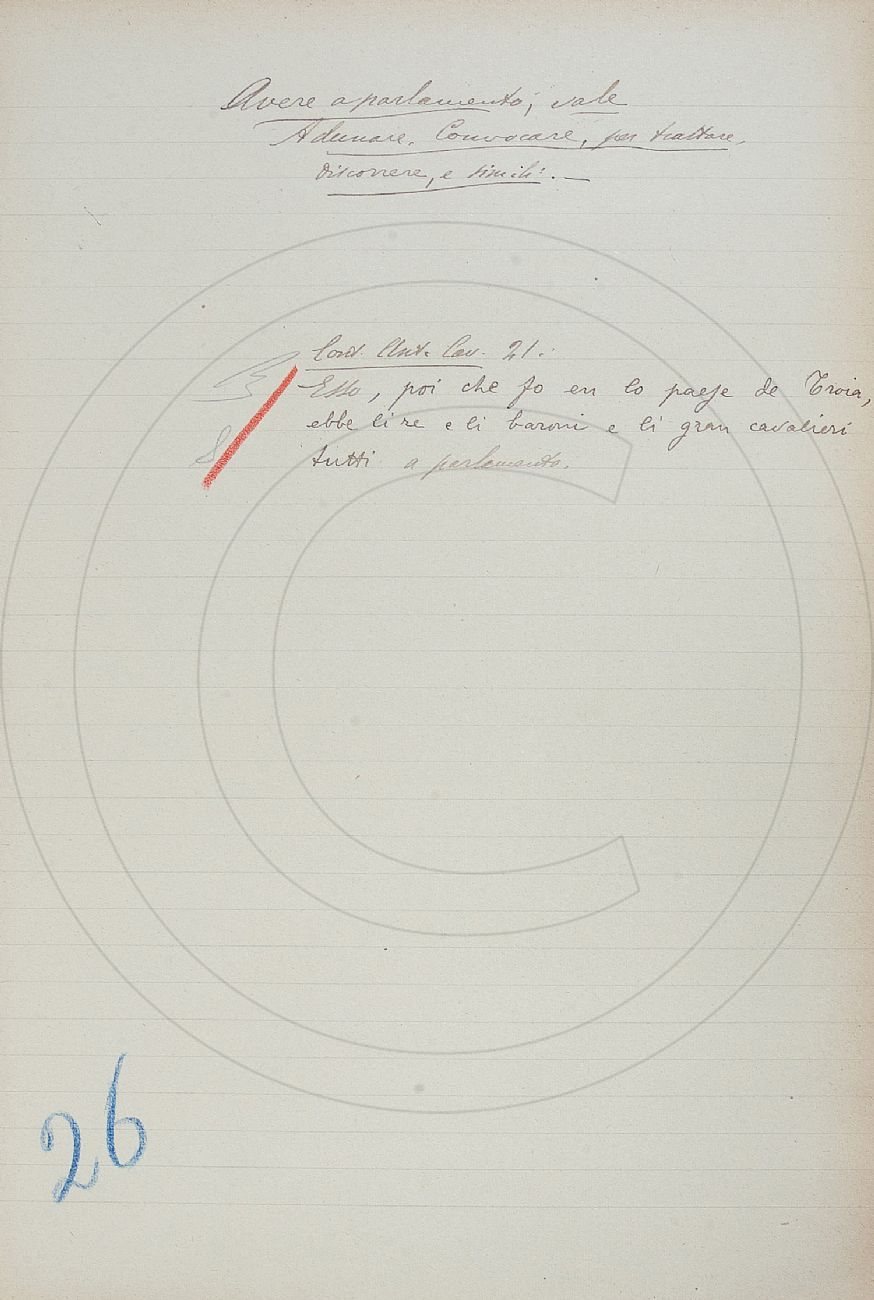 Avere a parlamento; vale
Adunare, Convocare, per trattare,
discorrere, e simili. —
Cont. Ant. Cav. 21.:
Esso, poi che fo en lo paese de Troia,
ebbe li re e li baroni e li gran cavalieri
tutti a parlamento.
26